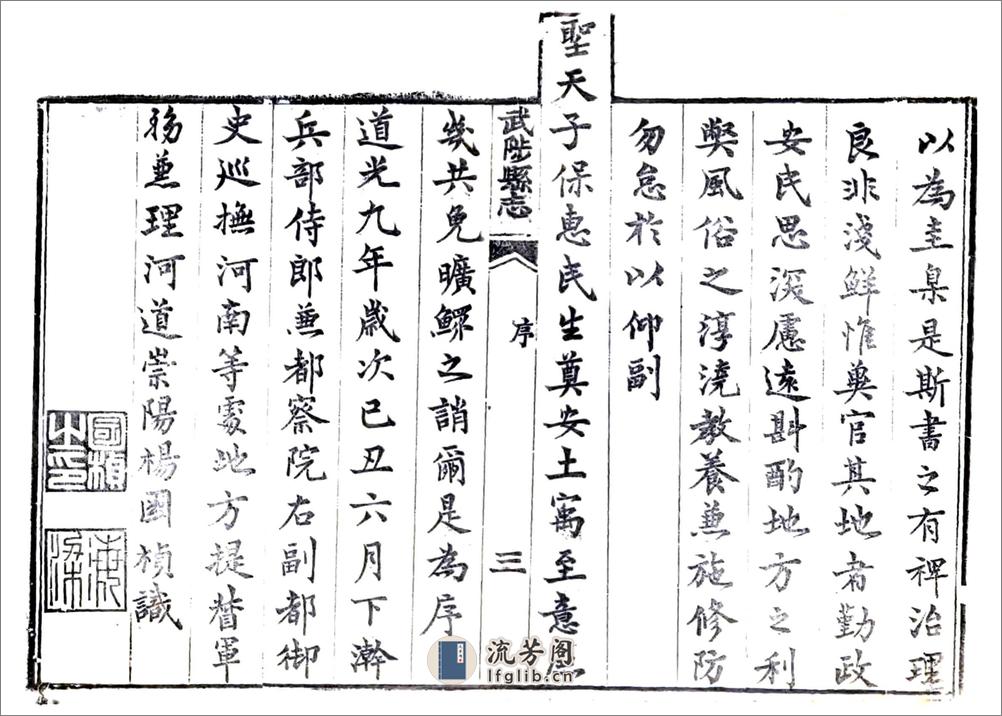 以為圭臬是斯書之有裨治理
良非淺鮮惟冀官其地者勤政
安民思深慮遠斟酌地方之利
獘風俗之淳澆教養兼施修防
勿怠於以仰副
聖天子保惠民生奠安土寓至意
武陟縣志
序
三
幾共免曠鰥之誚爾是為序
道光九年歲次己丑六月下澣
兵部侍郎兼都察院右副都御
史巡撫河南等處地方提督軍
務兼理河道崇陽楊國楨識
國楨之印
海梁
流芳阁
lfglib.cn